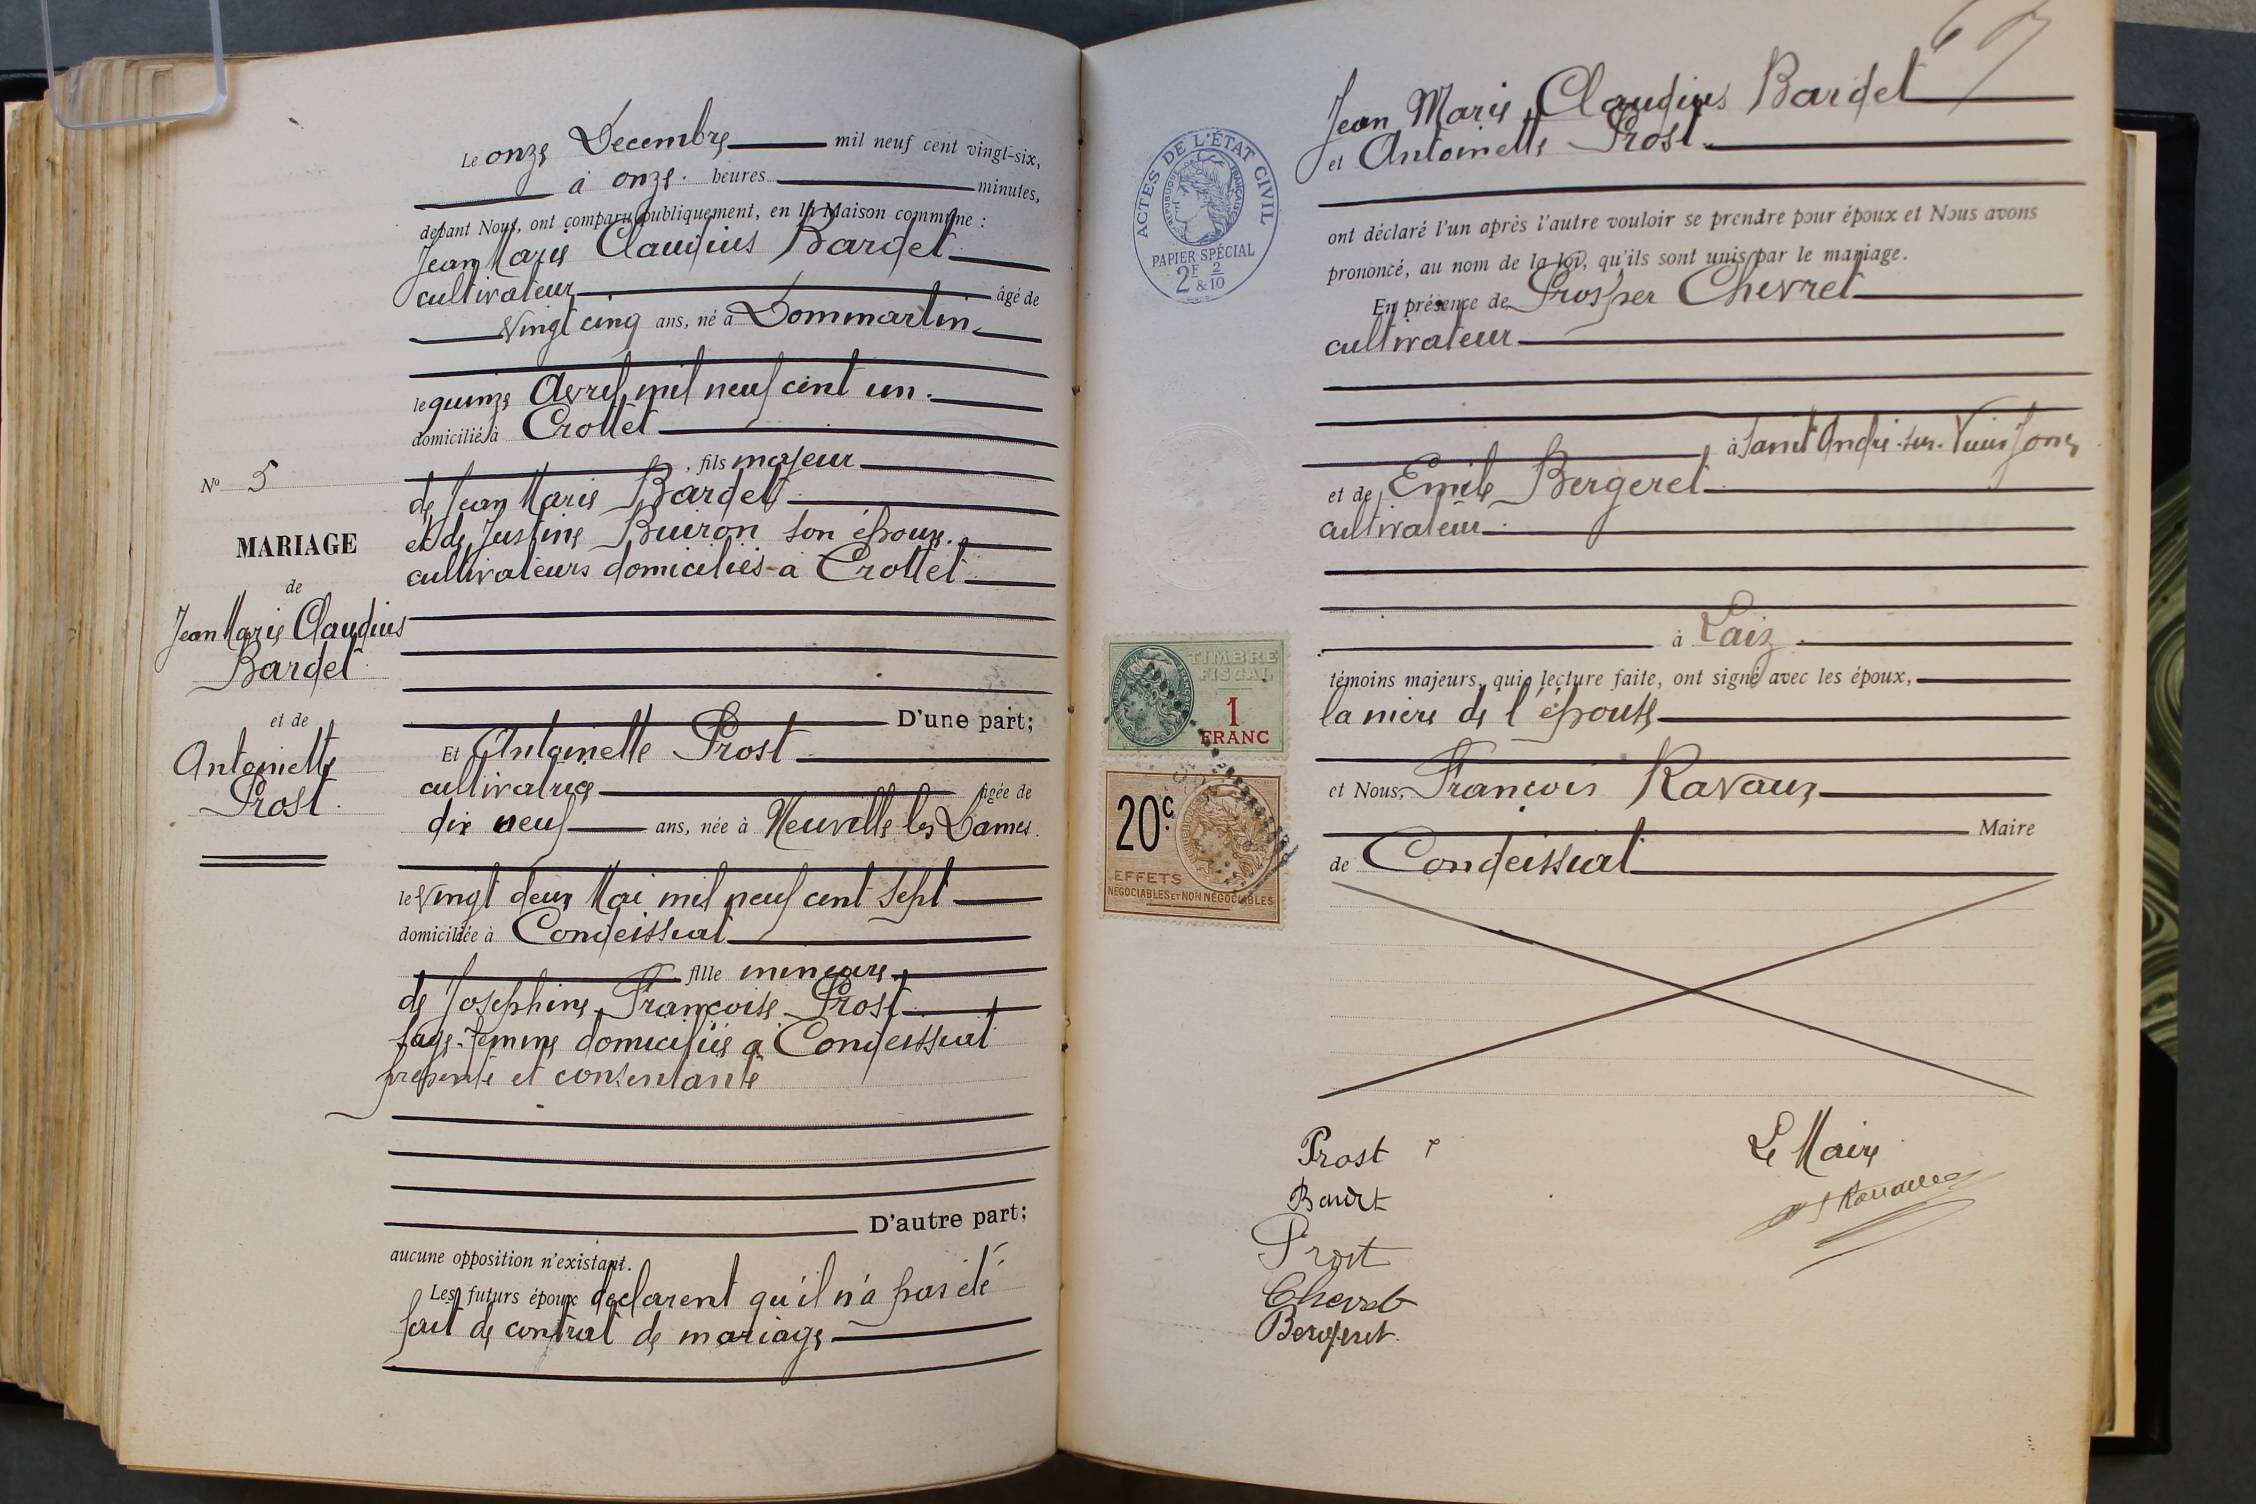 Le onze Decembre mil neuf cent vingt-six,
à onze heures minutes,
devant Nous, ont comparu publiquement, en la Maison commune :
Jean Marie Claudius Bardet
cultivateur âgé de
Vingt cinq ans, né à Dommartin
le quinze Avril mil neuf cent un.
domicilié à Crottet
, fils majeur
de Jean Marie Bardet
et de Justine Buiron son épouse.
cultivateurs domiciliés à Crottet
D'une part;
Et Antoinette Prost
cultivatrice âgée de
dix neuf ans, née à Neuville les Dames.
le Vingt deux Mai mil neuf cent Sept
domiciliée à Condeissiat
fille mineure
de Joséphine Françoise Prost
sage-femme domiciliée à Condeissiat
présente et consentante
D'autre part;
aucune opposition n'existant.
Les futurs époux declarent qu'il n'a pas été
fait de contrat de mariage
No 5
MARIAGE
de
Jean Marie Claudius
Bardet
et de
Antoinette
Prost.
Jean Marie Claudius Bardet
et Antoinette Prost.
ont déclaré l'un après l'autre vouloir se prendre pour époux et Nous avons
prononcé, au nom de la loi, qu'ils sont unis par le mariage.
En présence de Prosper Chevret
cultivateur
à Saint André-sur-Vieux Jonc
et de Emile Bergeret
cultivateur
à Laiz.
témoins majeurs, qui, lecture faite, ont signé avec les époux,
la mère de l'épouse
et Nous, François Ravaux
Maire
de Condeissiat
Prost
Bardet
Prost
Chevret
Bergeret
Le Maire
ACTES DE L'ÉTAT CIVIL
RÉPUBLIQUE FRANÇAISE
PAPIER SPÉCIAL
2F 2
&10
TIMBRE
FISCAL
1
FRANC
20c
EFFETS
NÉGOCIABLES ET NON NÉGOCIABLES